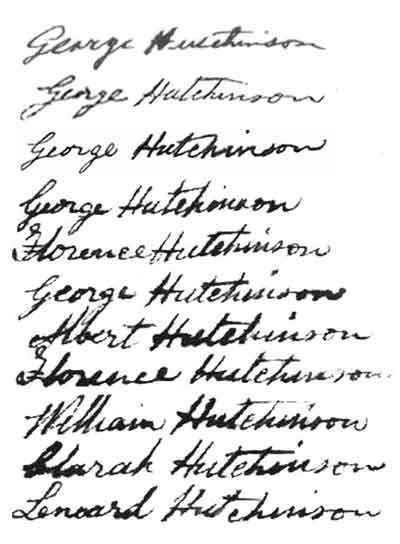 George Hutchinson
George Hutchinson
George Hutchinson
George Hutchinson
Florence Hutchinson
George Hutchinson
Albert Hutchinson
Florence Hutchinson
William Hutchinson
Sarah Hutchinson
Lenoard Hutchinson